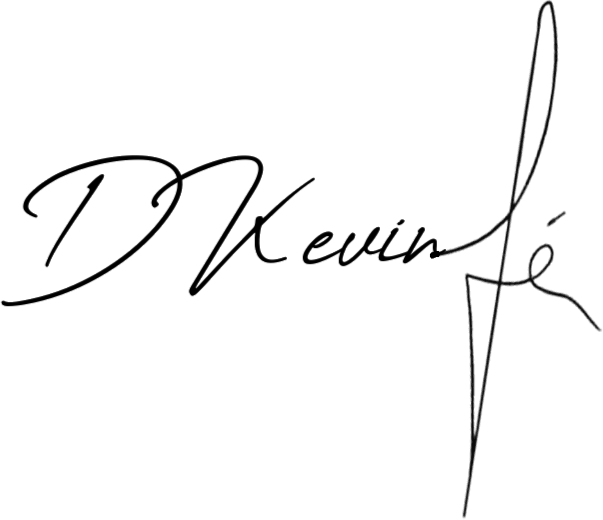 D Kevin fé